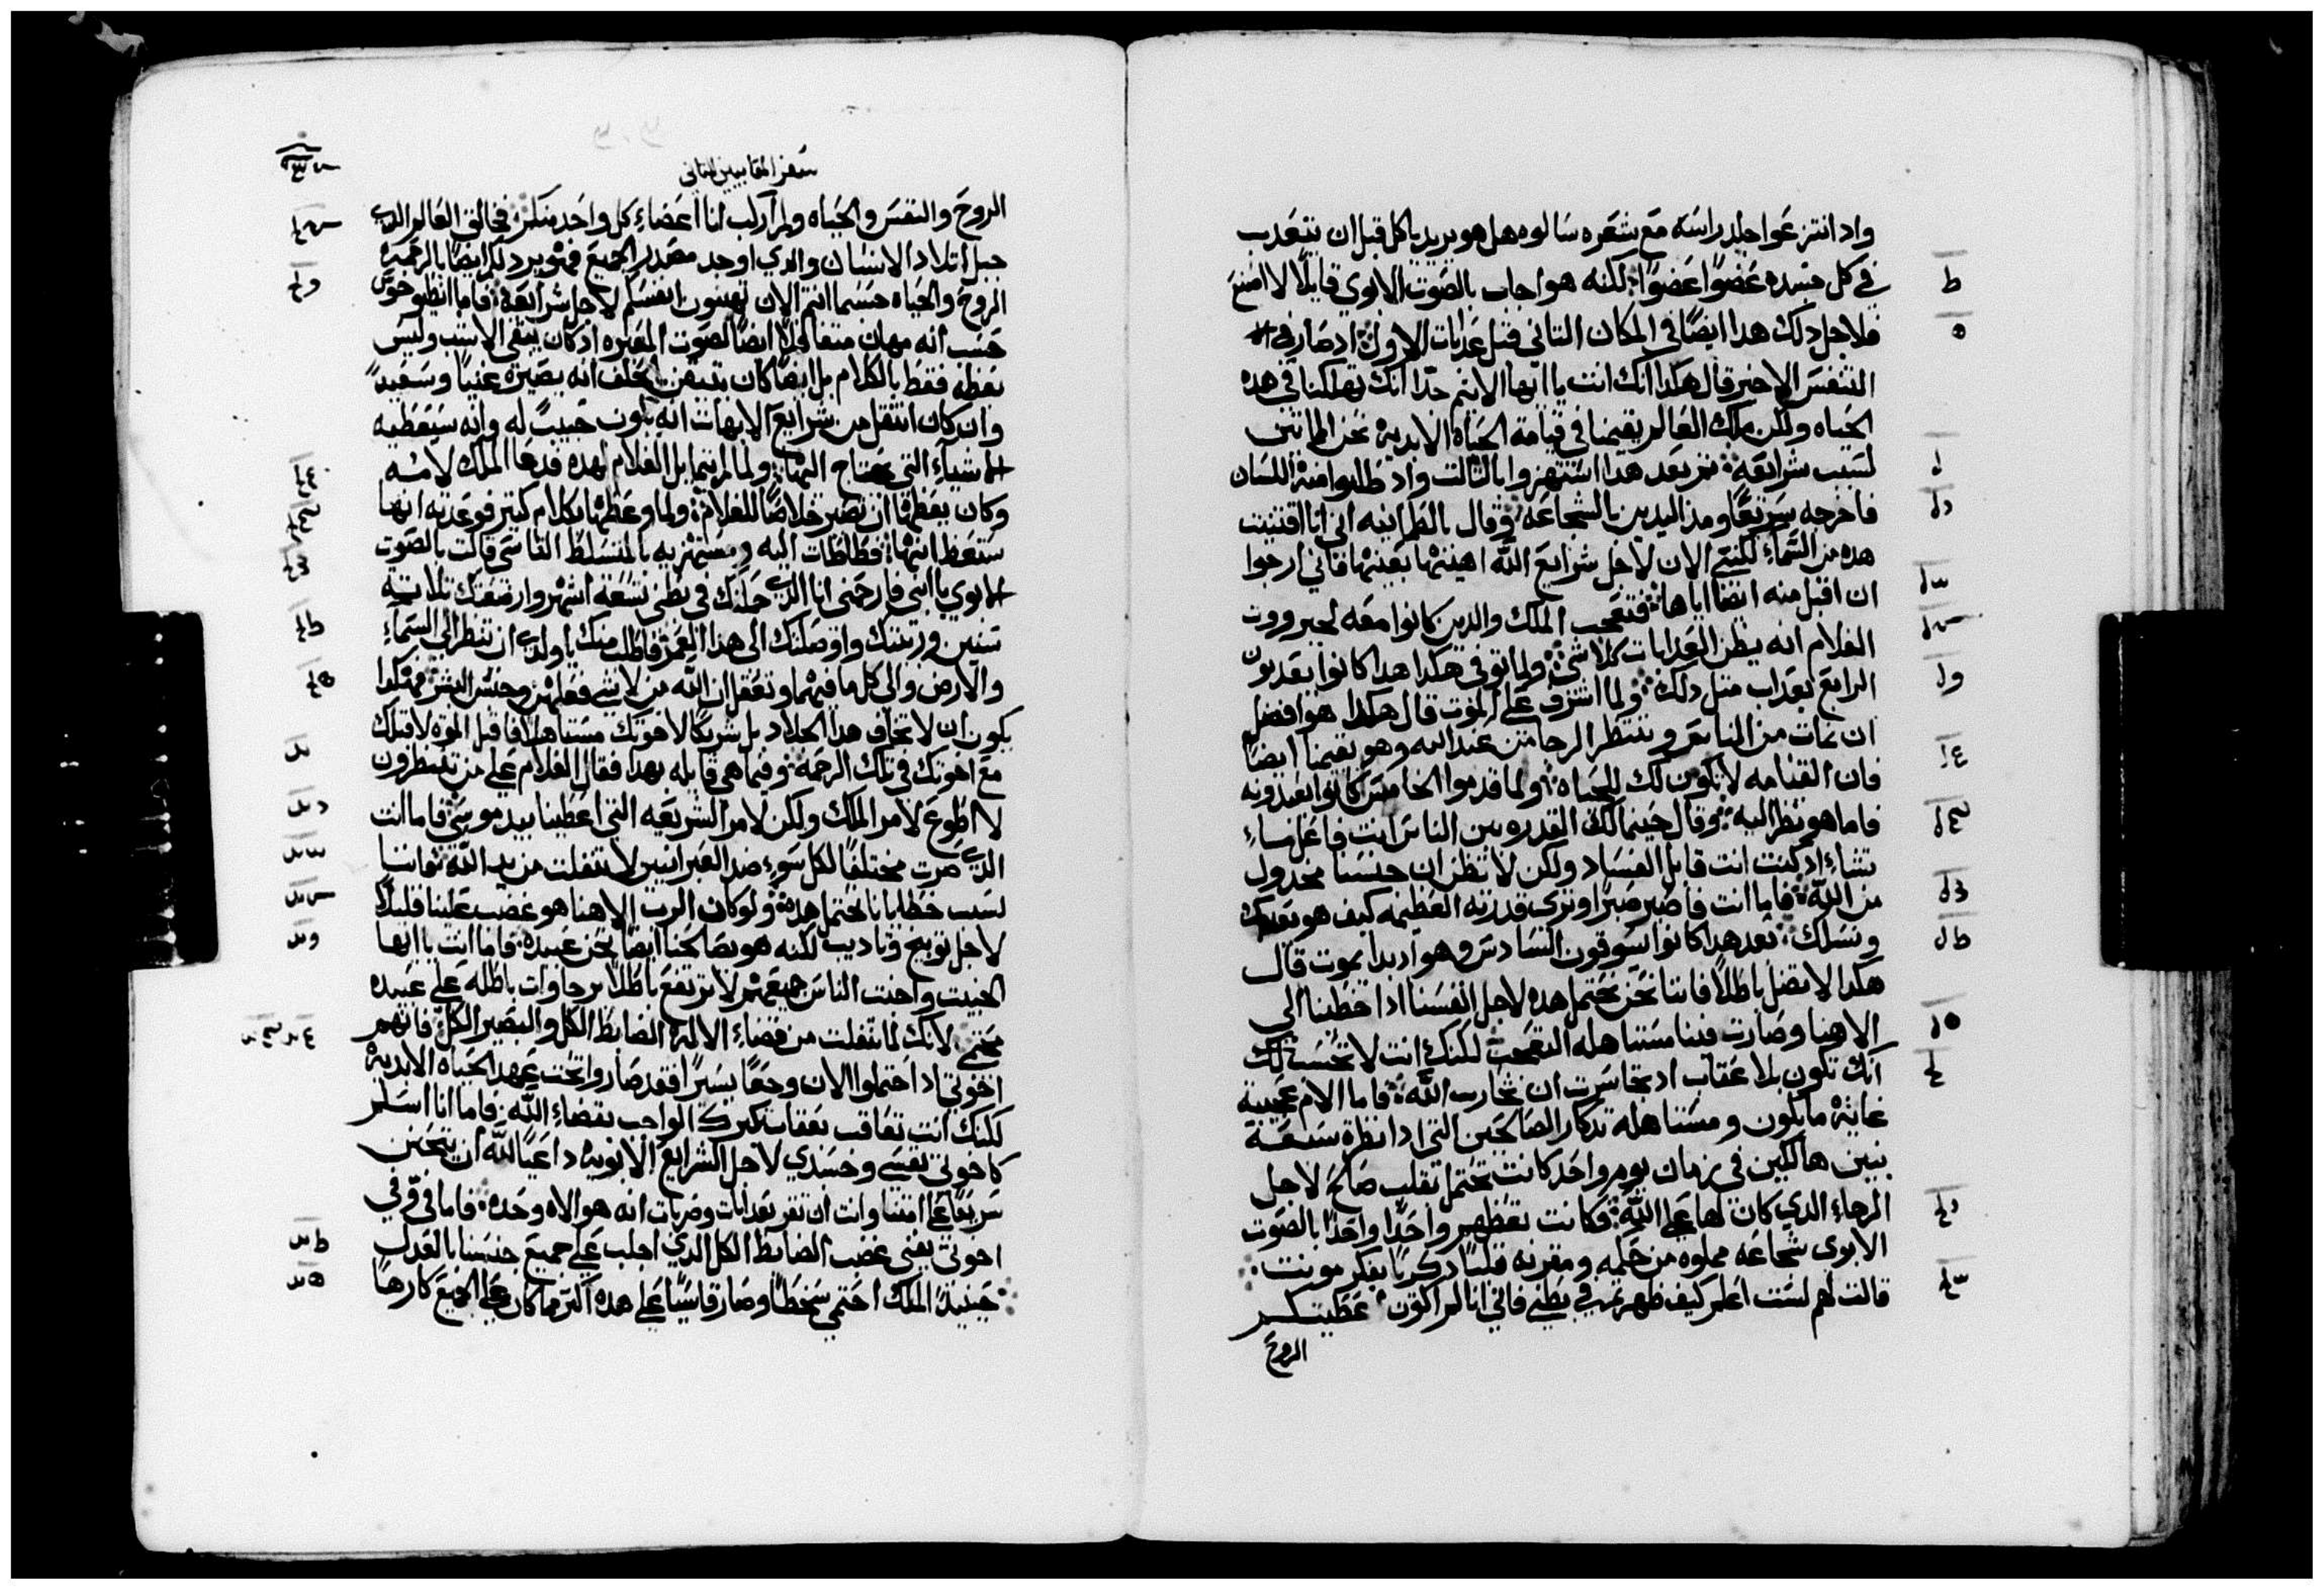 واد انتزعوا جلد راسه مع شعره سالوه هل هو يريد ياكل قبل ان يتعدب
في كل جسده عضوًا عضوًا لكنه هو اجاب بالصوت الابوي قايلًا لا امنع
فلاجل دلك هدا ايضًا في المكان التاني قبل عدابات الاول اد صار في
التنفس الاخير قال هكدا انك انت يا ايها الاتيم جدًا انك تهلكنا في هده
الحياه ولكن ملك العالم يقيمنا في قيامة الحياه الابدية نحن المايتين
لسبب شرايعه تم بعد هدا استهزوا بالتالت واد طلبوا منه اللسان
فاخرجه سريعًا ومد اليدين بالشجاعه وقال بالطمانيه اني انا اقتنيت
هده من السماء لكنني الان لاجل شرايع الله اهينها بعينها فاني ارجوا
ان اقبل منه ايضا اياها فتعجب الملك والدين كانوا معه لجبرووت
الغلام انه يظن العدابات كلا شي ولما توفي هكدا هدا كانوا يعدبون
الرابع بعداب متل دلك ولما اشرف على الموت قال هكدا هو افضل
ان يمات من الناس وننتظر الرجا من عند الله وهو يقيمنا ايضا
فان القيامه لا تكون لك للحياه ولما قدموا الخامس كانوا يعدبونه
فاما هو نظر اليه وقال حينما لك القدره بين الناس انت فاعل ما
تشاء اد كنت انت قابل الفساد ولكن لا تظن ان جنسنا مخدول
من الله فاما انت فاصبر صبرًا وترى قدرته العظيمه كيف هو يعدبك
ونسلك بعد هدا كانوا يسوقون السادس وهو اد بدا يموت قال
هكدا لا تضل باطلًا فاننا نحن نحتمل هده لاجل انفسنا ادا خطينا الى
الاهنا وصارت فينا مستاهله التعجب لكنك انت لا تحسب لك
انك تكون بلا عقاب اد تجاسرت ان تحارب الله فاما الام عجيبة
غاية ما يكون ومستاهله تدكار الصالحين التي ادا نظرة سبعة
بنين هالكين في زمان يوم واحد كانت تحتمل بقلب صالح لاجل
الرجاء الدي كان لها على الله فكانت تعظهم واحدًا واحدًا بالصوت
الابوي شجاعه مملوه من حكمه ومقرنه قلبًا دكريًا بفكر مونت
قالت لهم لست اعلم كيف ظهرتم في بطني فاني انا لم اكون عطيتكم
الروح
سفر المقابيين التاني
الروح والنفس والحياه ولم اركب انا اعضاء كل واحد منكم فخالق العالم الدي
جبل اتلاد الانسان والدي اوجد مصدر الجميع فهو يرد لكم ايضًا بالرحمة
الروح والحياه حسبما انتم الان تهينون انفسكم لاجل شرايعه فاما انطيوخوس
حسب انه مهان متغافلًا ايضًا لصوت المعيره اد كان يبقى الاشب وليس
يعظه فقط بالكلام بل ايضًا كان بتيقن بحلف انه يصيره غنيًا وسعيدًا
وان كان انتقل من شرايع الابهات انه يكون حبيب له وانه سيعطيه
الاشياء التي يحتاج اليها ولما لم يتمايل الغلام لهده فدعا الملك لامه
وكان يعظها ان تصير خلاصًا للغلام ولما وعظها بكلام كتير فوعدته انها
ستعظ ابنها فطاطات اليه ومستهزيه بالمتسلط القاسي قالت بالصوت
الابوي يا ابني فارحمني انا الدي حملتك في بطني تسعة اشهر وارضعتك تلاتة
سنين وربيتك واوصلتك الى هدا العمر فاطلب منك يا ولدي ان تنظر الى السماء
والارض والى كل ما فيهما وتعقل ان الله من لا شي فعلهم وجنس البشر فهكدا
يكون ان لا تخاف هدا الجلاد بل شريكًا لاخوتك مستاهلًا فاقبل الموت لاقبلك
مع اخوتك في تلك الرحمه وفيما هي قايله بهدا فقال الغلام على من تنتظرون
لا اطوع لامر الملك ولكن لامر الشريعه التي اعطينا بيد موسى فاما انت
الدي صرت مختلفًا لكل سوء ضد العبرانيين لا تنفلت من يد الله فاننا
لسبب خطايانا نحتمل هده ولو كان الرب الاهنا هو غضب علينا قليلًا
لاجل توبيخ وتاديب لكنه هو يصالحنا ايضًا نحن عبيده فاما انت يا ايها
الخبيت واخبت الناس جميعهم لا ترتفع باطلًا برجاوات باطله على عبيده
محتمي لانك لما تنفلت من قضاء الاله الضابط الكل والبصير الكل فانهم
اخوتي اد احتملوا الان وجعًا يسيرًا فقد صاروا تحت عهد الحياه الابدية
لكنك انت تعاقب بعقاب تكبرك الواجب بقضاء الله فاما انا اسلم
كاخوتي نفسي وجسدي لاجل الشرايع الابويه داعيًا لله ان يتحنن
سريعًا على امتنا وانت ان تقر بعدابات وضربات انه هو الاه وحده فاما في وفي
اخوتي يفنى غضب الضابط الكل الدي اجلب على جميع جنسنا بالعدل
حينيدٍ الملك احتمي سخطًا وصار قاسيًا على هده اكتر مما كان على الجميع كارهًا